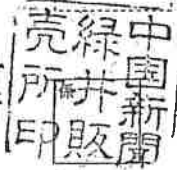 中国新聞
緑井販
売所印
係